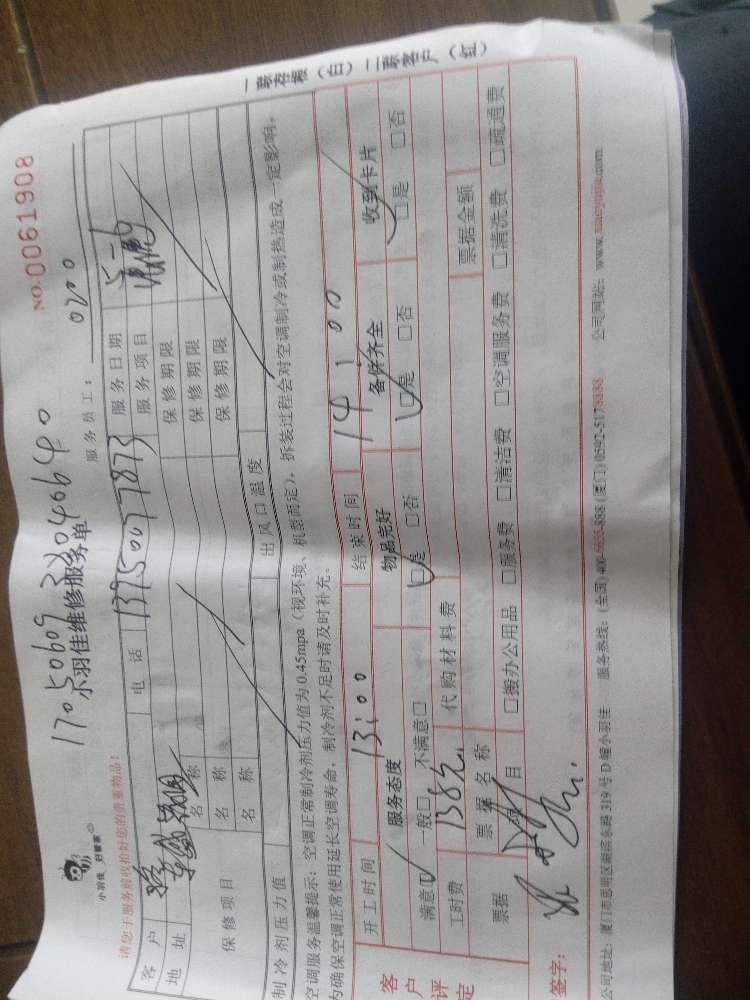 一联存根（白） 二联客户（红）
NO.0061908
小羽佳 好管家
小羽佳维修服务单
服务员工： 0200
请您于服务前收拾好您的贵重物品！
客户 电话 13950077873 服务日期
地址 服务项目
保修项目 名称 保修期限
名称 保修期限
名称 保修期限
制冷剂压力值 出风口温度
空调服务温馨提示：空调正常制冷剂压力值为0.45mpa（视环境、机型而定），拆装过程会对空调制冷或制热造成一定影响。
为确保空调正常使用延长空调寿命，制冷剂不足时请及时补充。
客户评定
开工时间 13:00 结束时间 14:00
服务态度 物品完好 备件齐全 收到卡片
满意□ 一般□ 不满意□ □是 □否 □是 □否 □是 □否
工时费 138元 代购材料费
票据 票据名称 票据金额
项目 □搬办公用品 □服务费 □清洁费 □空调服务费 □清洗费 □疏通费
签字：
公司地址：厦门市思明区湖滨东路319号D幢小羽佳 服务热线：(全国)400-6655-888 (厦门)0592-5178888 公司网站：www.xiaoyujia.com